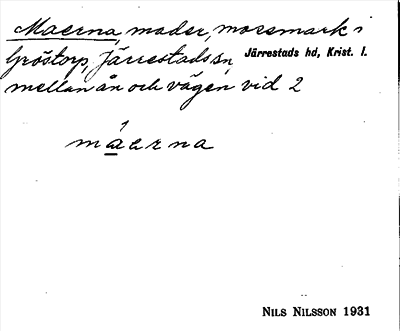 Maerna, mader, mossmark i
Gröstorp, Järrestads sn, Järrestads hd, Krist. l.
mellan ån och vägen vid 2
maerna
NILS NILSSON 1931